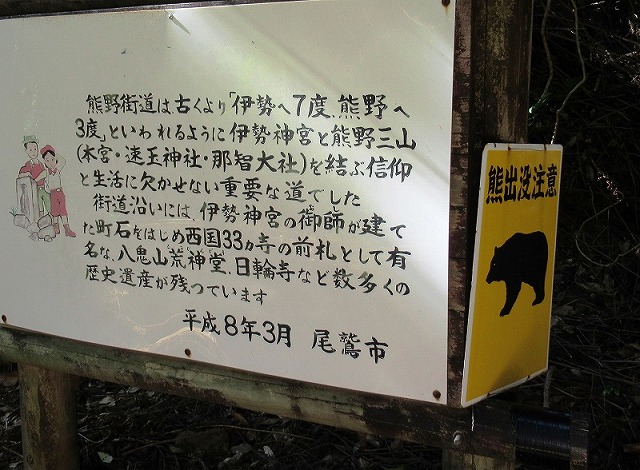 熊野街道は古くより「伊勢へ7度、熊野へ
3度」といわれるように伊勢神宮と熊野三山
(本宮・速玉神社・那智大社)を結ぶ信仰
と生活に欠かせない重要な道でした
街道沿いには、伊勢神宮の御師が建て
た町石をはじめ西国33ヵ寺の前札として有
名な、八鬼山荒神堂、日輪寺など数多くの
歴史遺産が残っています
平成8年3月 尾鷲市
熊出没注意